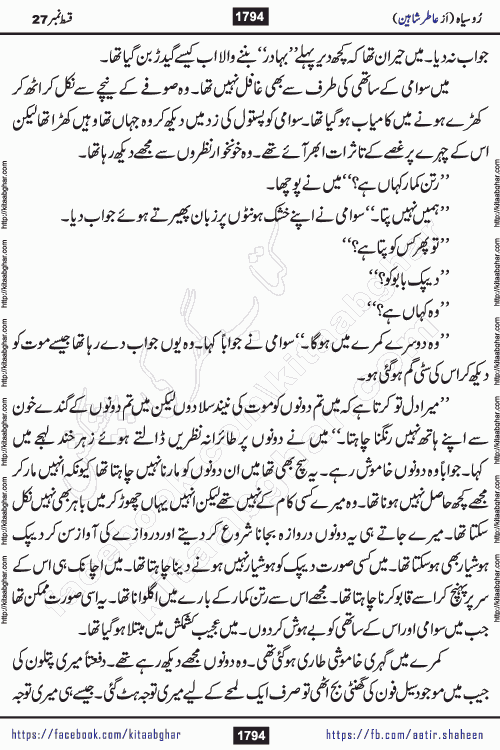 رُوسیاہ (از عاطر شاہین)
1794
قسط نمبر 27
جواب نہ دیا۔ میں حیران تھا کہ کچھ دیر پہلے ’’بہادر‘‘ بننے والا اب کیسے گیدڑ بن گیا تھا۔
میں سوامی کے ساتھی کی طرف سے بھی غافل نہیں تھا۔ وہ صوفے کے نیچے سے نکل کر اٹھ کر
کھڑے ہونے میں کامیاب ہو گیا تھا۔ سوامی کو پستول کی زد میں دیکھ کر وہ جہاں تھا وہیں کھڑا تھا لیکن
اس کے چہرے پر غصے کے تاثرات ابھر آئے تھے۔ وہ خونخوار نظروں سے مجھے دیکھ رہا تھا۔
’’رتن کمار کہاں ہے؟‘‘ میں نے پوچھا۔
’’ہمیں نہیں پتا۔‘‘ سوامی نے اپنے خشک ہونٹوں پر زبان پھیرتے ہوئے جواب دیا۔
’’تو پھر کس کو پتا ہے؟‘‘
’’دیپک بابو کو؟‘‘
’’وہ کہاں ہے؟‘‘
’’وہ دوسرے کمرے میں ہوگا۔‘‘ سوامی نے جواباً کہا۔ وہ یوں جواب دے رہا تھا جیسے موت کو
دیکھ کر اس کی سٹی گم ہو گئی ہو۔
’’میرا دل تو کرتا ہے کہ میں تم دونوں کو موت کی نیند سلا دوں لیکن میں تم دونوں کے گندے خون
سے اپنے ہاتھ نہیں رنگنا چاہتا۔‘‘ میں نے دونوں پر طائرانہ نظریں ڈالتے ہوئے زہرخند لہجے میں
کہا۔ جواباً وہ دونوں خاموش رہے۔ یہ سچ بھی تھا میں ان دونوں کو مارنا نہیں چاہتا تھا کیونکہ انہیں مار کر
مجھے کچھ حاصل نہیں ہونا تھا۔ وہ میرے کسی کام کے نہیں تھے لیکن انہیں یہاں چھوڑ کر میں باہر بھی نہیں نکل
سکتا تھا۔ میرے جاتے ہی یہ دونوں دروازہ بجانا شروع کر دیتے اور دروازے کی آواز سن کر دیپک
ہوشیار بھی ہو سکتا تھا۔ میں کسی صورت دیپک کو ہوشیار نہیں ہونے دینا چاہتا تھا۔ میں اچانک ہی اس کے
سر پر پہنچ کر اسے قابو کرنا چاہتا تھا۔ مجھے اس سے رتن کمار کے بارے میں اگلوانا تھا۔ یہ اسی صورت ممکن تھا
جب میں سوامی اور اس کے ساتھی کو بے ہوش کر دوں۔ میں عجیب کشمکش میں مبتلا ہو گیا تھا۔
کمرے میں گہری خاموشی طاری ہو گئی تھی۔ وہ دونوں مجھے دیکھ رہے تھے۔ دفعتاً میری پتلون کی
جیب میں موجود سیل فون کی گھنٹی بج اٹھی تو صرف ایک لمحے کے لیے میری توجہ ہٹ گئی۔ جیسے ہی میری توجہ
https://facebook.com/kitaabghar
1794
https://fb.com/aatir.shaheen
http://kitaabghar.com
http://kitaabghar.com
http://kitaabghar.com
http://kitaabghar.com
http://kitaabghar.com
http://kitaabghar.com
http://kitaabghar.com
http://kitaabghar.com
http://kitaabghar.com
http://kitaabghar.com
http://kitaabghar.com
http://kitaabghar.com